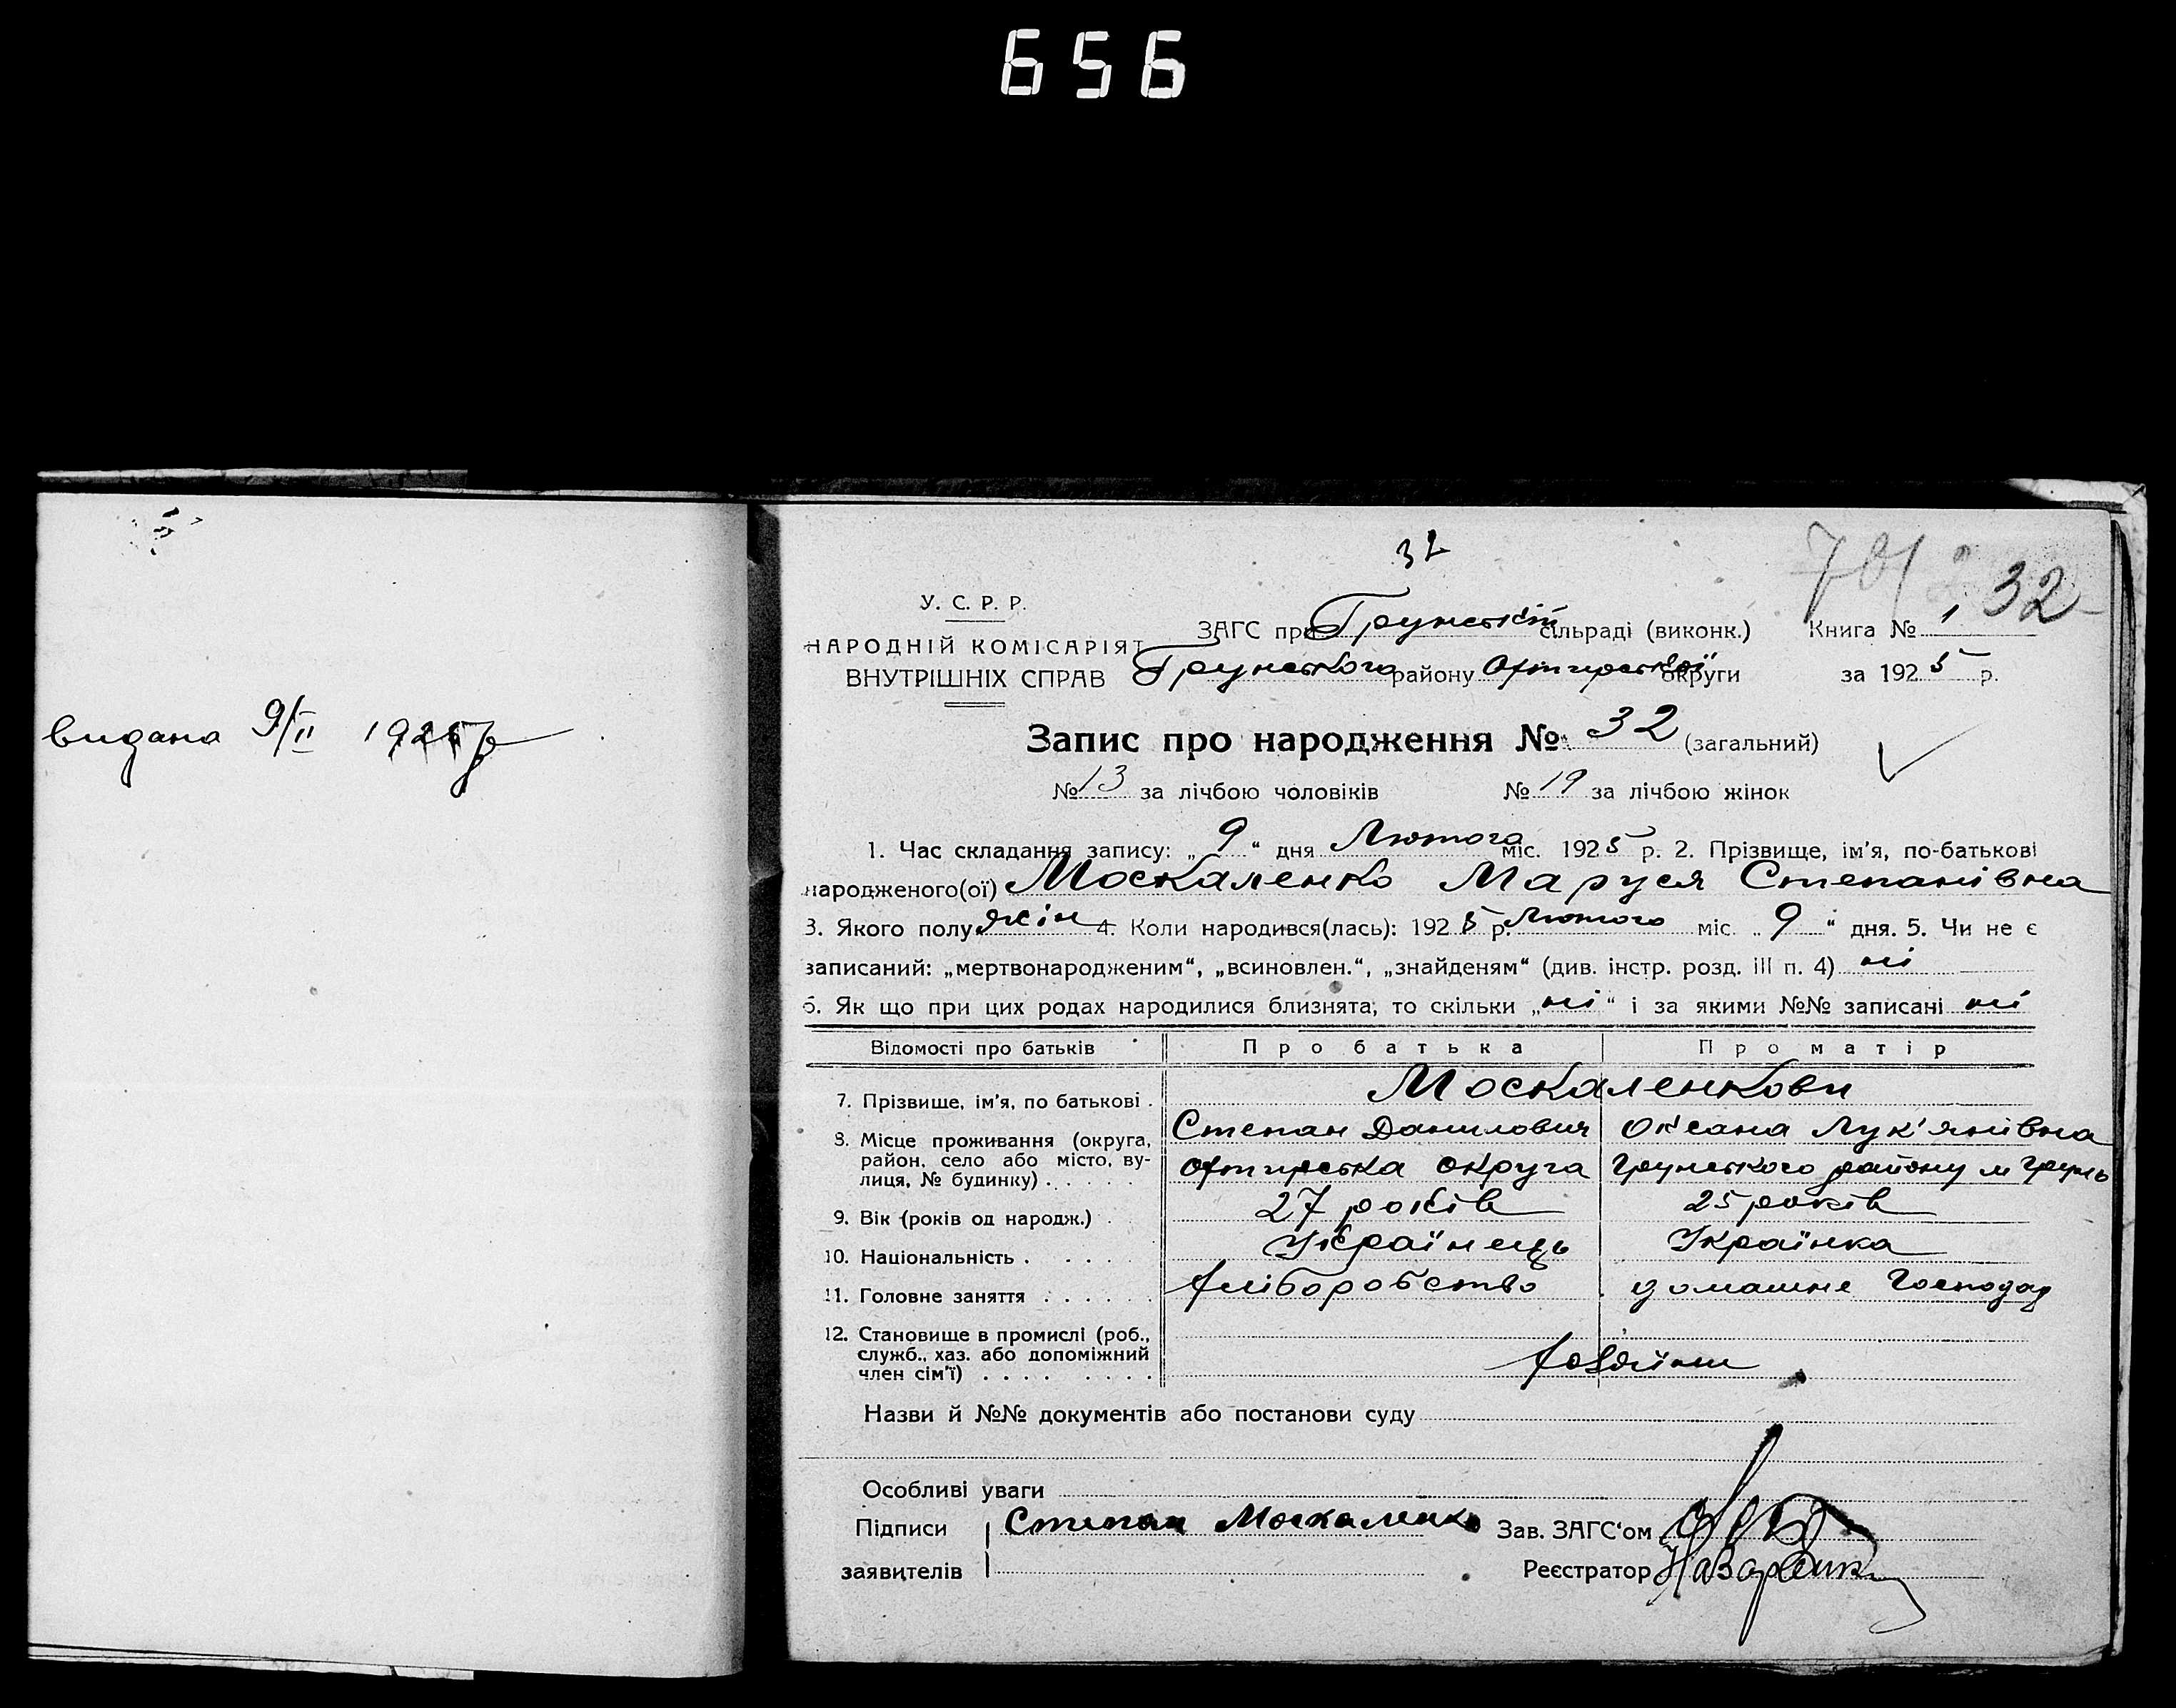 656
видана 9/II 1925 р
32
701
32
У. С. Р. Р.
НАРОДНІЙ КОМІСАРІЯТ
ВНУТРІШНІХ СПРАВ
ЗАГС при Грунській сільраді (виконк.) Книга № 1
Грунського району Охтирської округи за 1925 р.
Запис про народження № 32 (загальний)
№ 13 за лічбою чоловіків № 19 за лічбою жінок
1. Час складання запису: „9“ дня Лютого міс. 1925 р. 2. Прізвище, ім'я, по-батькові
народженого(ої) Москаленко Маруся Степанівна
3. Якого полу жін 4. Коли народився(лась): 1925 р. Лютого міс. „9“ дня. 5. Чи не є
записаний: „мертвонародженим“, „всиновлен.“, „знайденям“ (див. інстр. розд. III п. 4) ні
6. Як що при цих родах народилися близнята, то скільки „ні“ і за якими №№ записані ні
Відомості про батьків Про батька Про матір
7. Прізвище, ім'я, по батькові . Москаленкови
Степан Данилович Оксана Лук'янівна
8. Місце проживання (округа, район, село або місто, вулиця, № будинку) . . . . . Охтирська округа Грунського району м Грунь
9. Вік (років од народж.) . 27 років 25 років
10. Національність . . . . . Українець Українка
11. Головне заняття . . . . . . Хліборобство домашне Господар
12. Становище в промислі (роб., служб., хаз. або допоміжний член сім'ї) . . . . . . . . Хазяїни
Назви й №№ документів або постанови суду
Особливі уваги
Підписи заявителів Степан Москаленко
Зав. ЗАГС'ом
Реєстратор